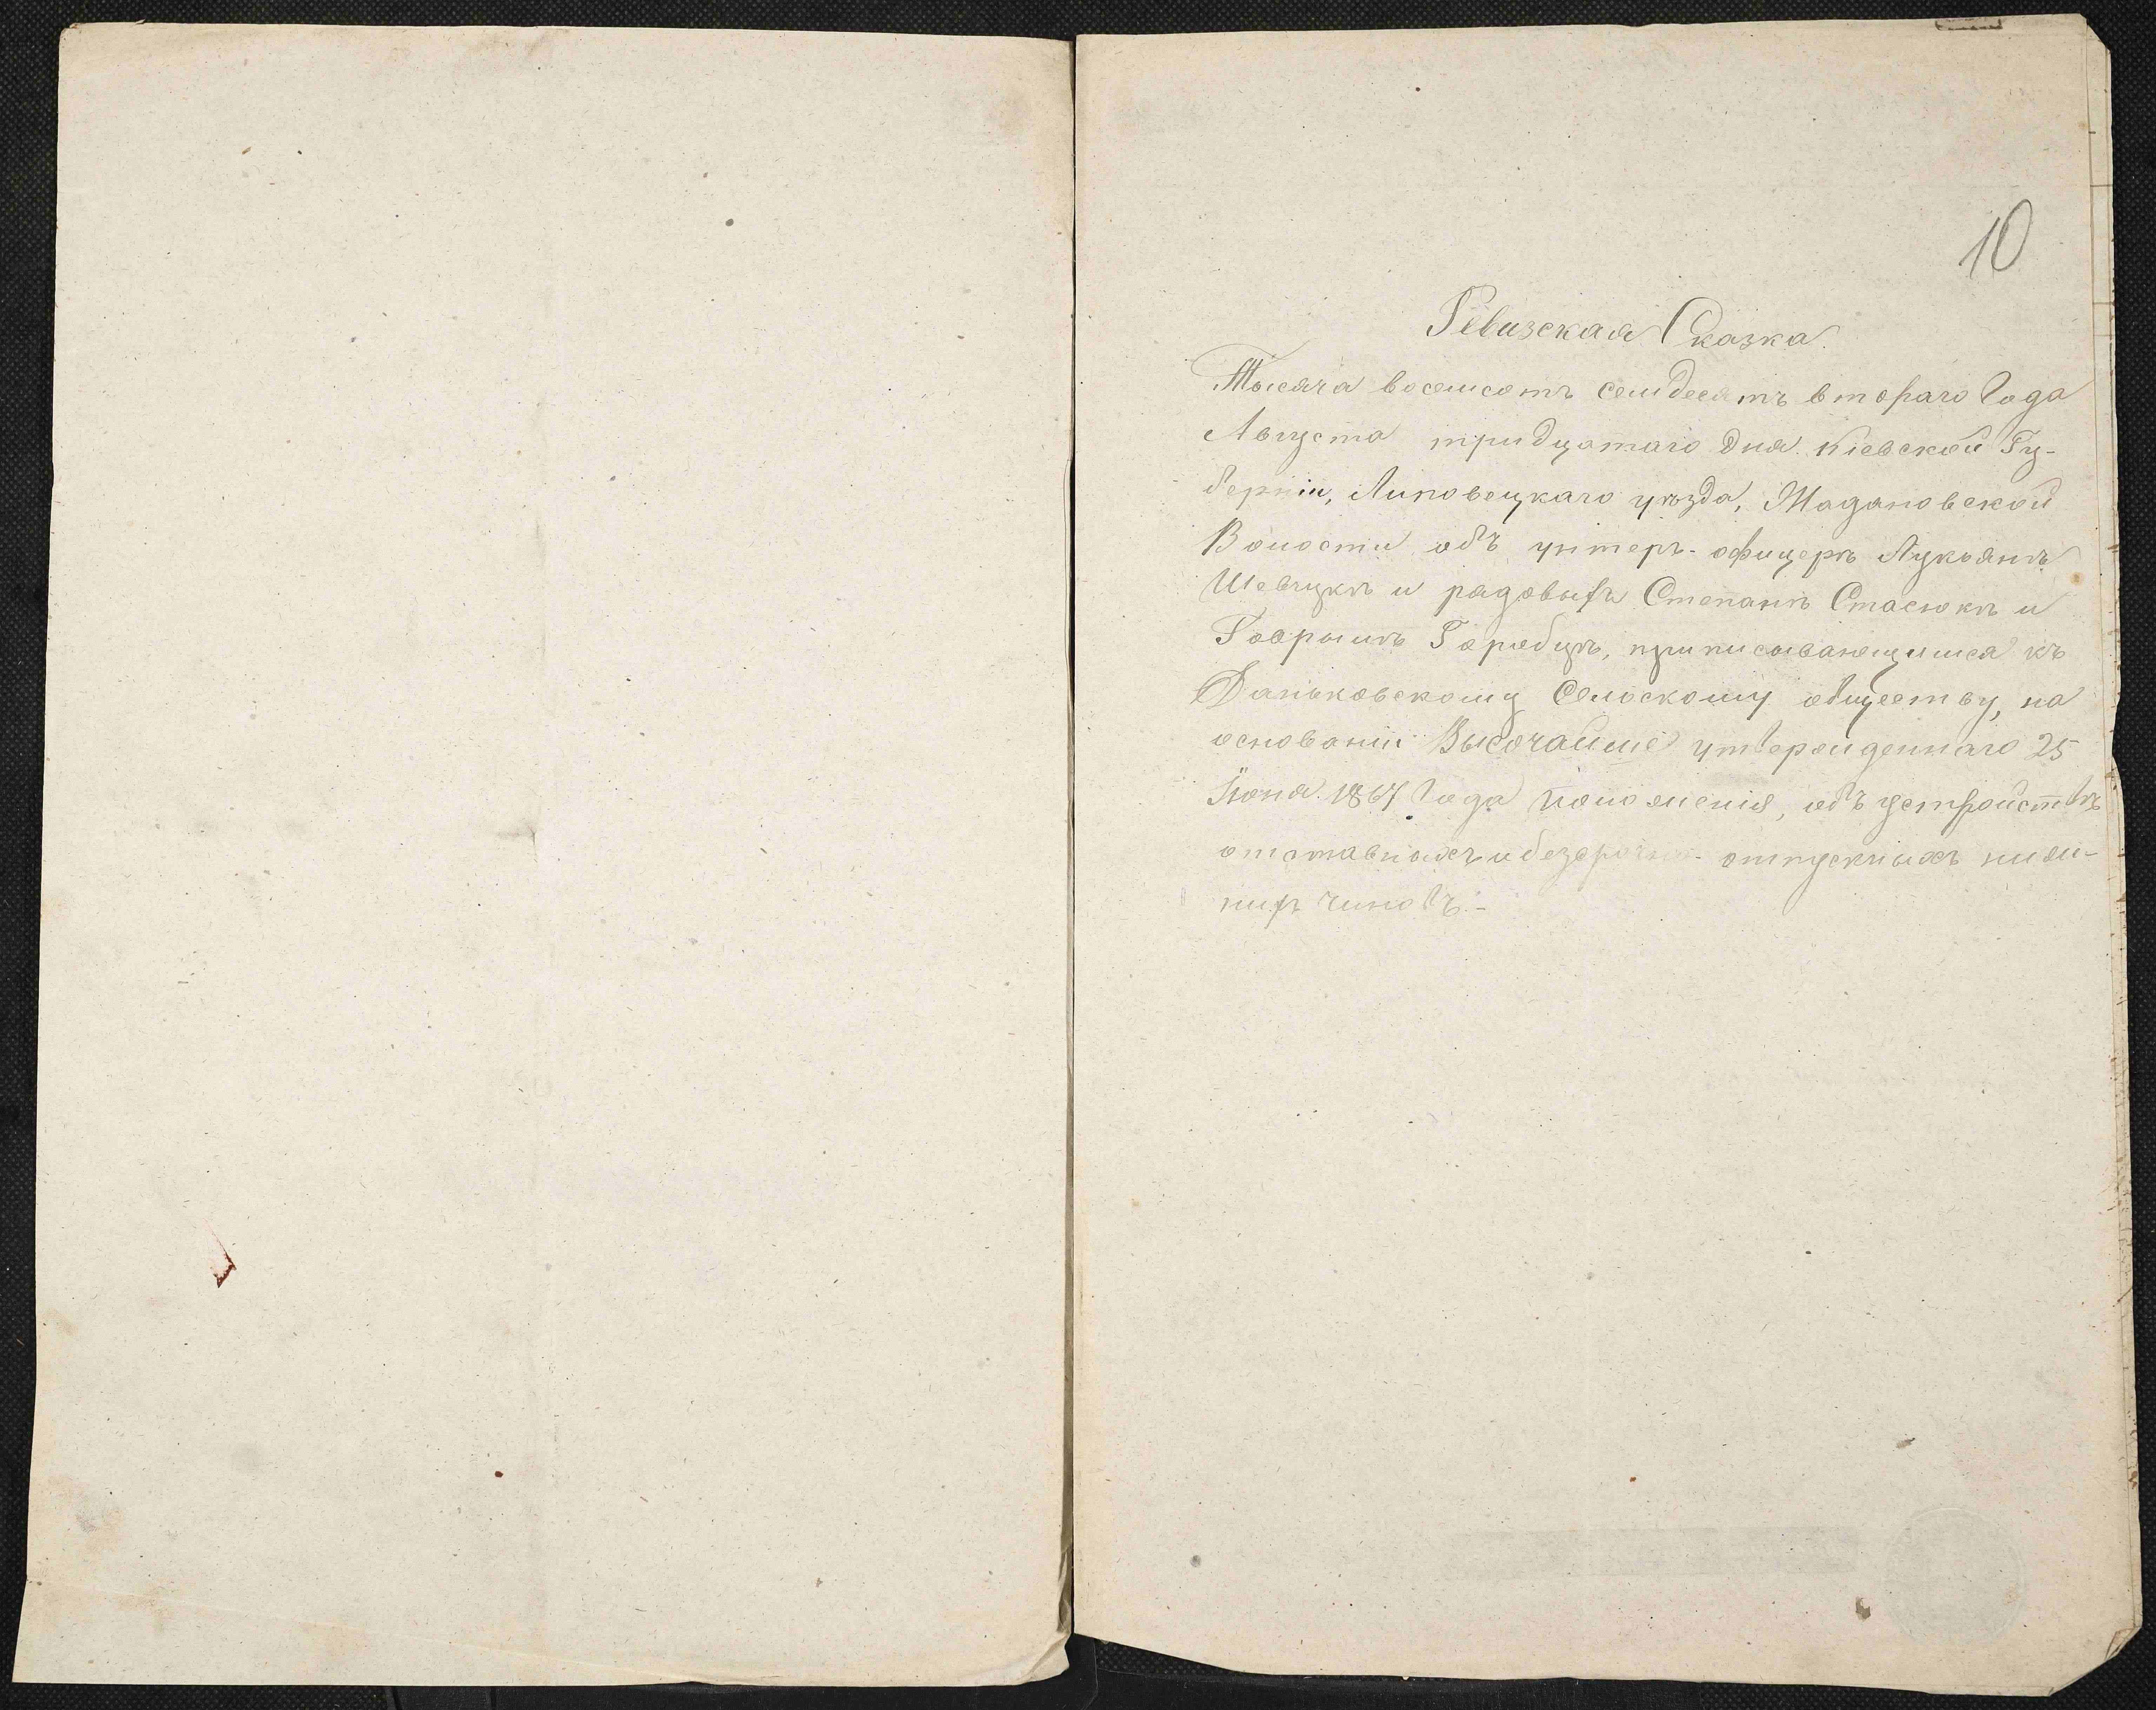 10
Ревизская Сказка.
Тысяча восемсотъ семдесятъ втораго Года
Августа тридцатаго дня. Кіевской Гу-
берніи, Липовецкаго уѣзда, Жадановской
Волости объ унтеръ-офицерѣ Лукьянѣ
Шевчукѣ и рядовыхъ Степанѣ Стасюкѣ и
Гаврыилѣ Горобцѣ, приписывающимся къ
Даньковскому Селскому обществу, на
основаніи Высочайше утвержденнаго 25
Іюня 1867 Года положенія, объ устройствѣ
отставныхъ и безсрочно-отпускныхъ ниж-
нихъ чиновъ.-